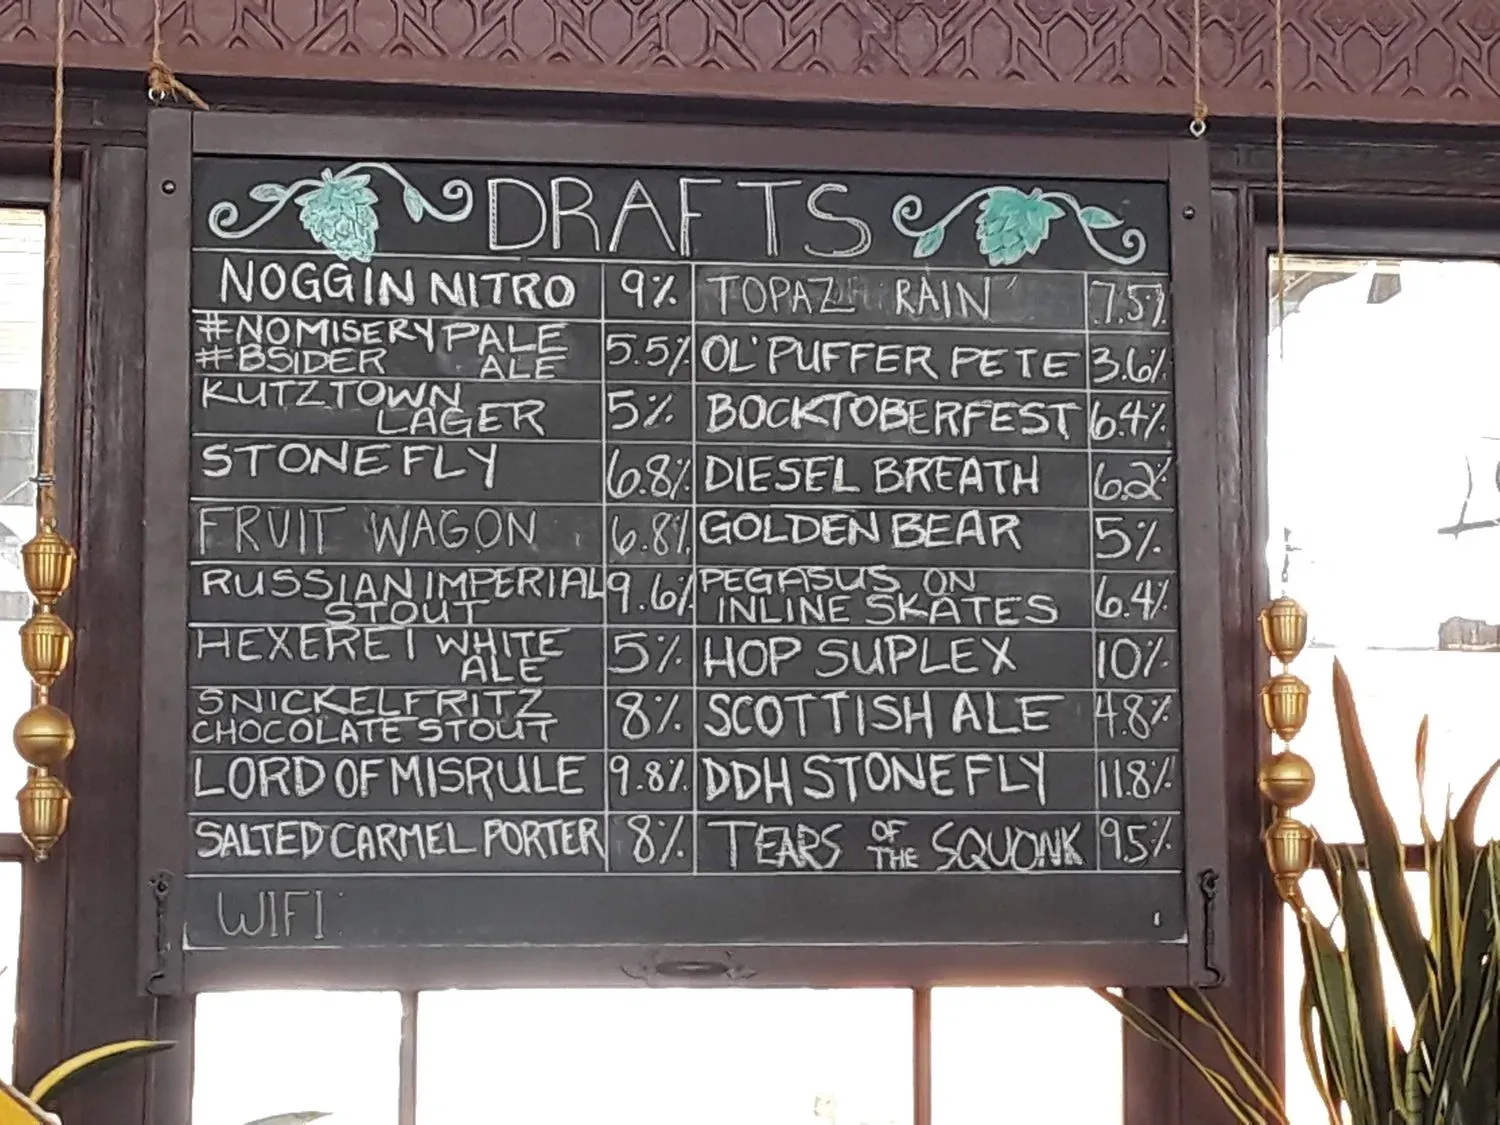 DRAFTS
NOGGIN NITRO 9%
#NOMISERY PALE
#BSIDER ALE 5.5%
KUTZTOWN
LAGER 5%
STONEFLY 6.8%
FRUIT WAGON 6.8%
RUSSIAN IMPERIAL
STOUT 9.6%
HEXEREI WHITE
ALE 5%
SNICKELFRITZ
CHOCOLATE STOUT 8%
LORD OF MISRULE 9.8%
SALTED CARMEL PORTER 8%
TOPAZ RAIN 7.5%
OL' PUFFER PETE 3.6%
BOCKTOBERFEST 6.4%
DIESEL BREATH 6.2%
GOLDEN BEAR 5%
PEGASUS ON
INLINE SKATES 6.4%
HOP SUPLEX 10%
SCOTTISH ALE 4.8%
DDH STONEFLY 11.8%
TEARS OF THE SQUONK 9.5%
WIFI: